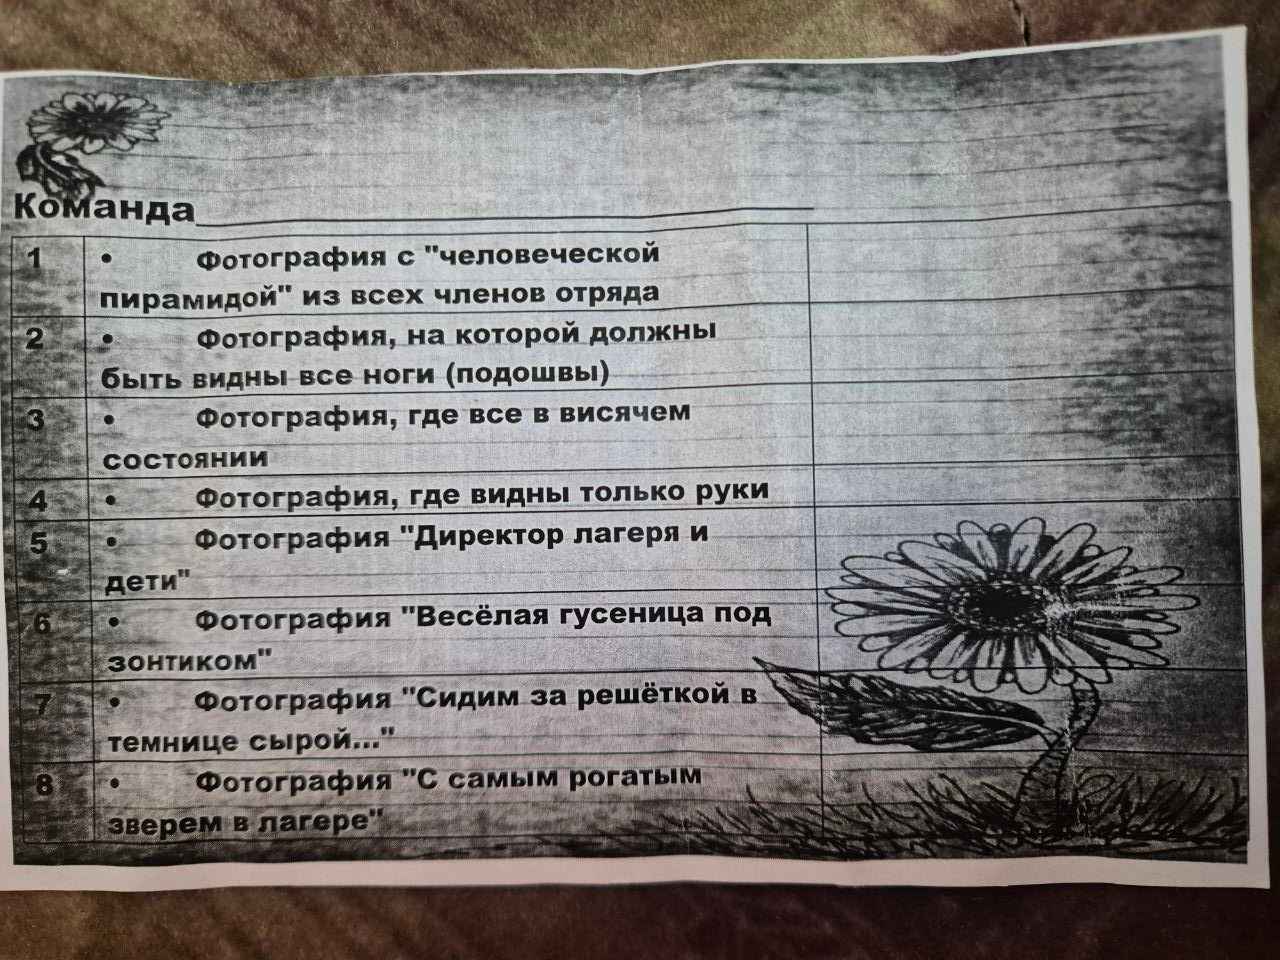 Команда
1 • Фотография с "человеческой
пирамидой" из всех членов отряда
2 • Фотография, на которой должны
быть видны все ноги (подошвы)
3 • Фотография, где все в висячем
состоянии
4 • Фотография, где видны только руки
5 • Фотография "Директор лагеря и
дети"
6 • Фотография "Весёлая гусеница под
зонтиком"
7 • Фотография "Сидим за решёткой в
темнице сырой..."
8 • Фотография "С самым рогатым
зверем в лагере"